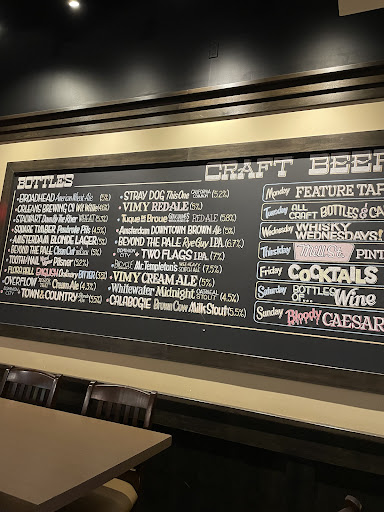 CRAFT BEER
BOTTLES
BROADHEAD (5%)
ORLEANS BREWING CO Wit White (4.6%)
STEWART Down By The River WHEAT (5.3%)
SQUARE TIMBER Pale (4.5%)
AMSTERDAM BLONDE LAGER (5%)
BEYOND THE PALE Clean Cut (5%)
TOOTH AND NAIL Pilsner (5.2%)
FLORA HALL ENGLISH Ordinary BITTER
OVERFLOW Cream Ale (4.3%)
TOWN & COUNTRY (5.5%)
STRAY DOG This One CALIFORNIA COMMON (5.2%)
VIMY RED ALE (5%)
Tuque de Broue RED ALE (5.8%)
Amsterdam DOWNTOWN BROWN Ale (5%)
BEYOND THE PALE Rye Guy I.P.A. (6.7%)
TWO FLAGS IPA. (7%)
Mc.Templeton's (7.5%)
VIMY CREAM ALE (5%)
Whitewater Midnight OATMEAL STOUT (4.5%)
CALABOGIE Brown Cow Milk Stout (5.5%)
Monday FEATURE TAP
Tuesday ALL CRAFT BOTTLES & CA
Wednesday WHISKY WEDNESDAYS!
Thirstday PINT
Friday COCKTAILS
Saturday BOTTLES OF... Wine
Sunday Bloody CAESAR